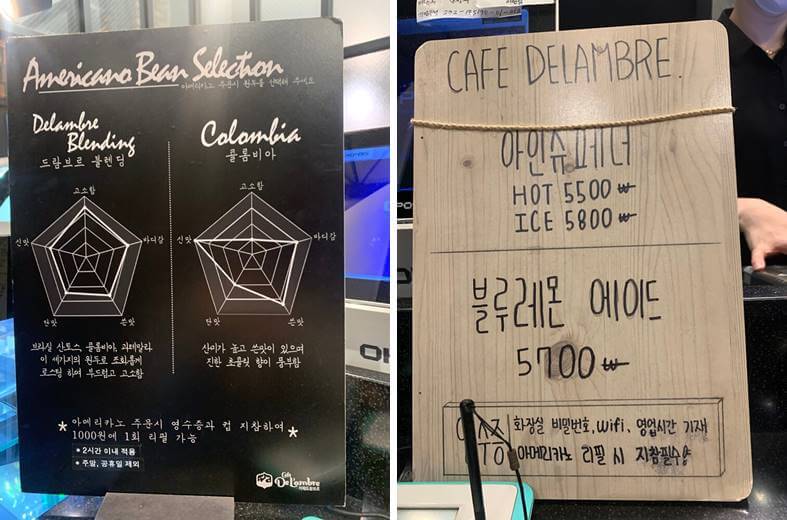 Americano Bean Selection
아메리카노 주문시 원두를 선택해 주세요
Delambre
Blending
드람브르 블렌딩
고소함
신맛
바디감
단맛
쓴맛
브라질 산토스, 콜롬비아, 과테말라
이 세가지의 원두로 조화롭게
로스팅 하여 부드럽고 고소함
Colombia
콜롬비아
고소함
신맛
바디감
단맛
쓴맛
산미가 높고 쓴맛이 있으며
진한 초콜릿 향이 풍부함
* 아메리카노 주문시 영수증과 컵 지참하여 *
1000원에 1회 리필 가능
* 2시간 이내 적용
* 주말, 공휴일 제외
Cafe
DeLambre
카페드람브르
CAFE DELAMBRE.
아인슈페너
HOT 5500 ₩
ICE 5800 ₩
블루레몬 에이드
5700 ₩
화장실 비밀번호, wifi, 영업시간 기재
아메리카노 리필 시 지참필수